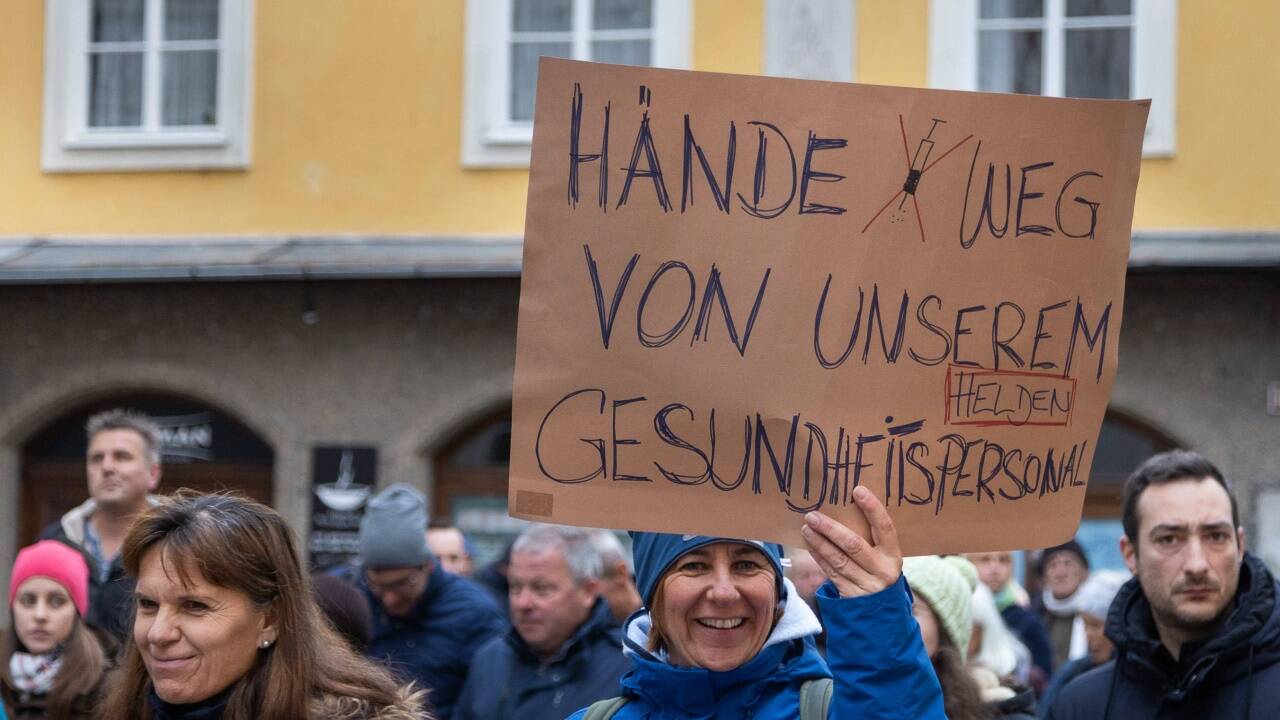 MAN
HÄNDE WEG
VON UNSEREM
HELDEN
GESUNDHEITSPERSONAL